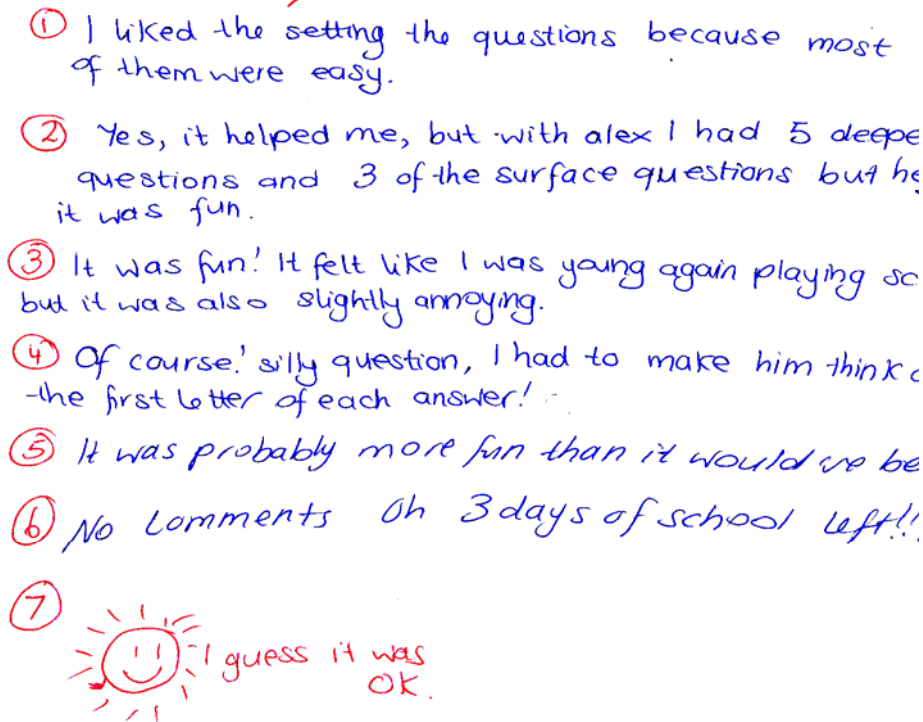 ① I liked the setting the questions because most
of them were easy.
② Yes, it helped me, but with alex I had 5 deepe
questions and 3 of the surface questions but he
it was fun.
③ It was fun! It felt like I was young again playing sc
but it was also slightly annoying.
④ Of course! silly question, I had to make him think o
the first letter of each answer!
⑤ It was probably more fun than it would've be
⑥ No comments Oh 3 days of school left!!!
⑦
I guess it was
OK.